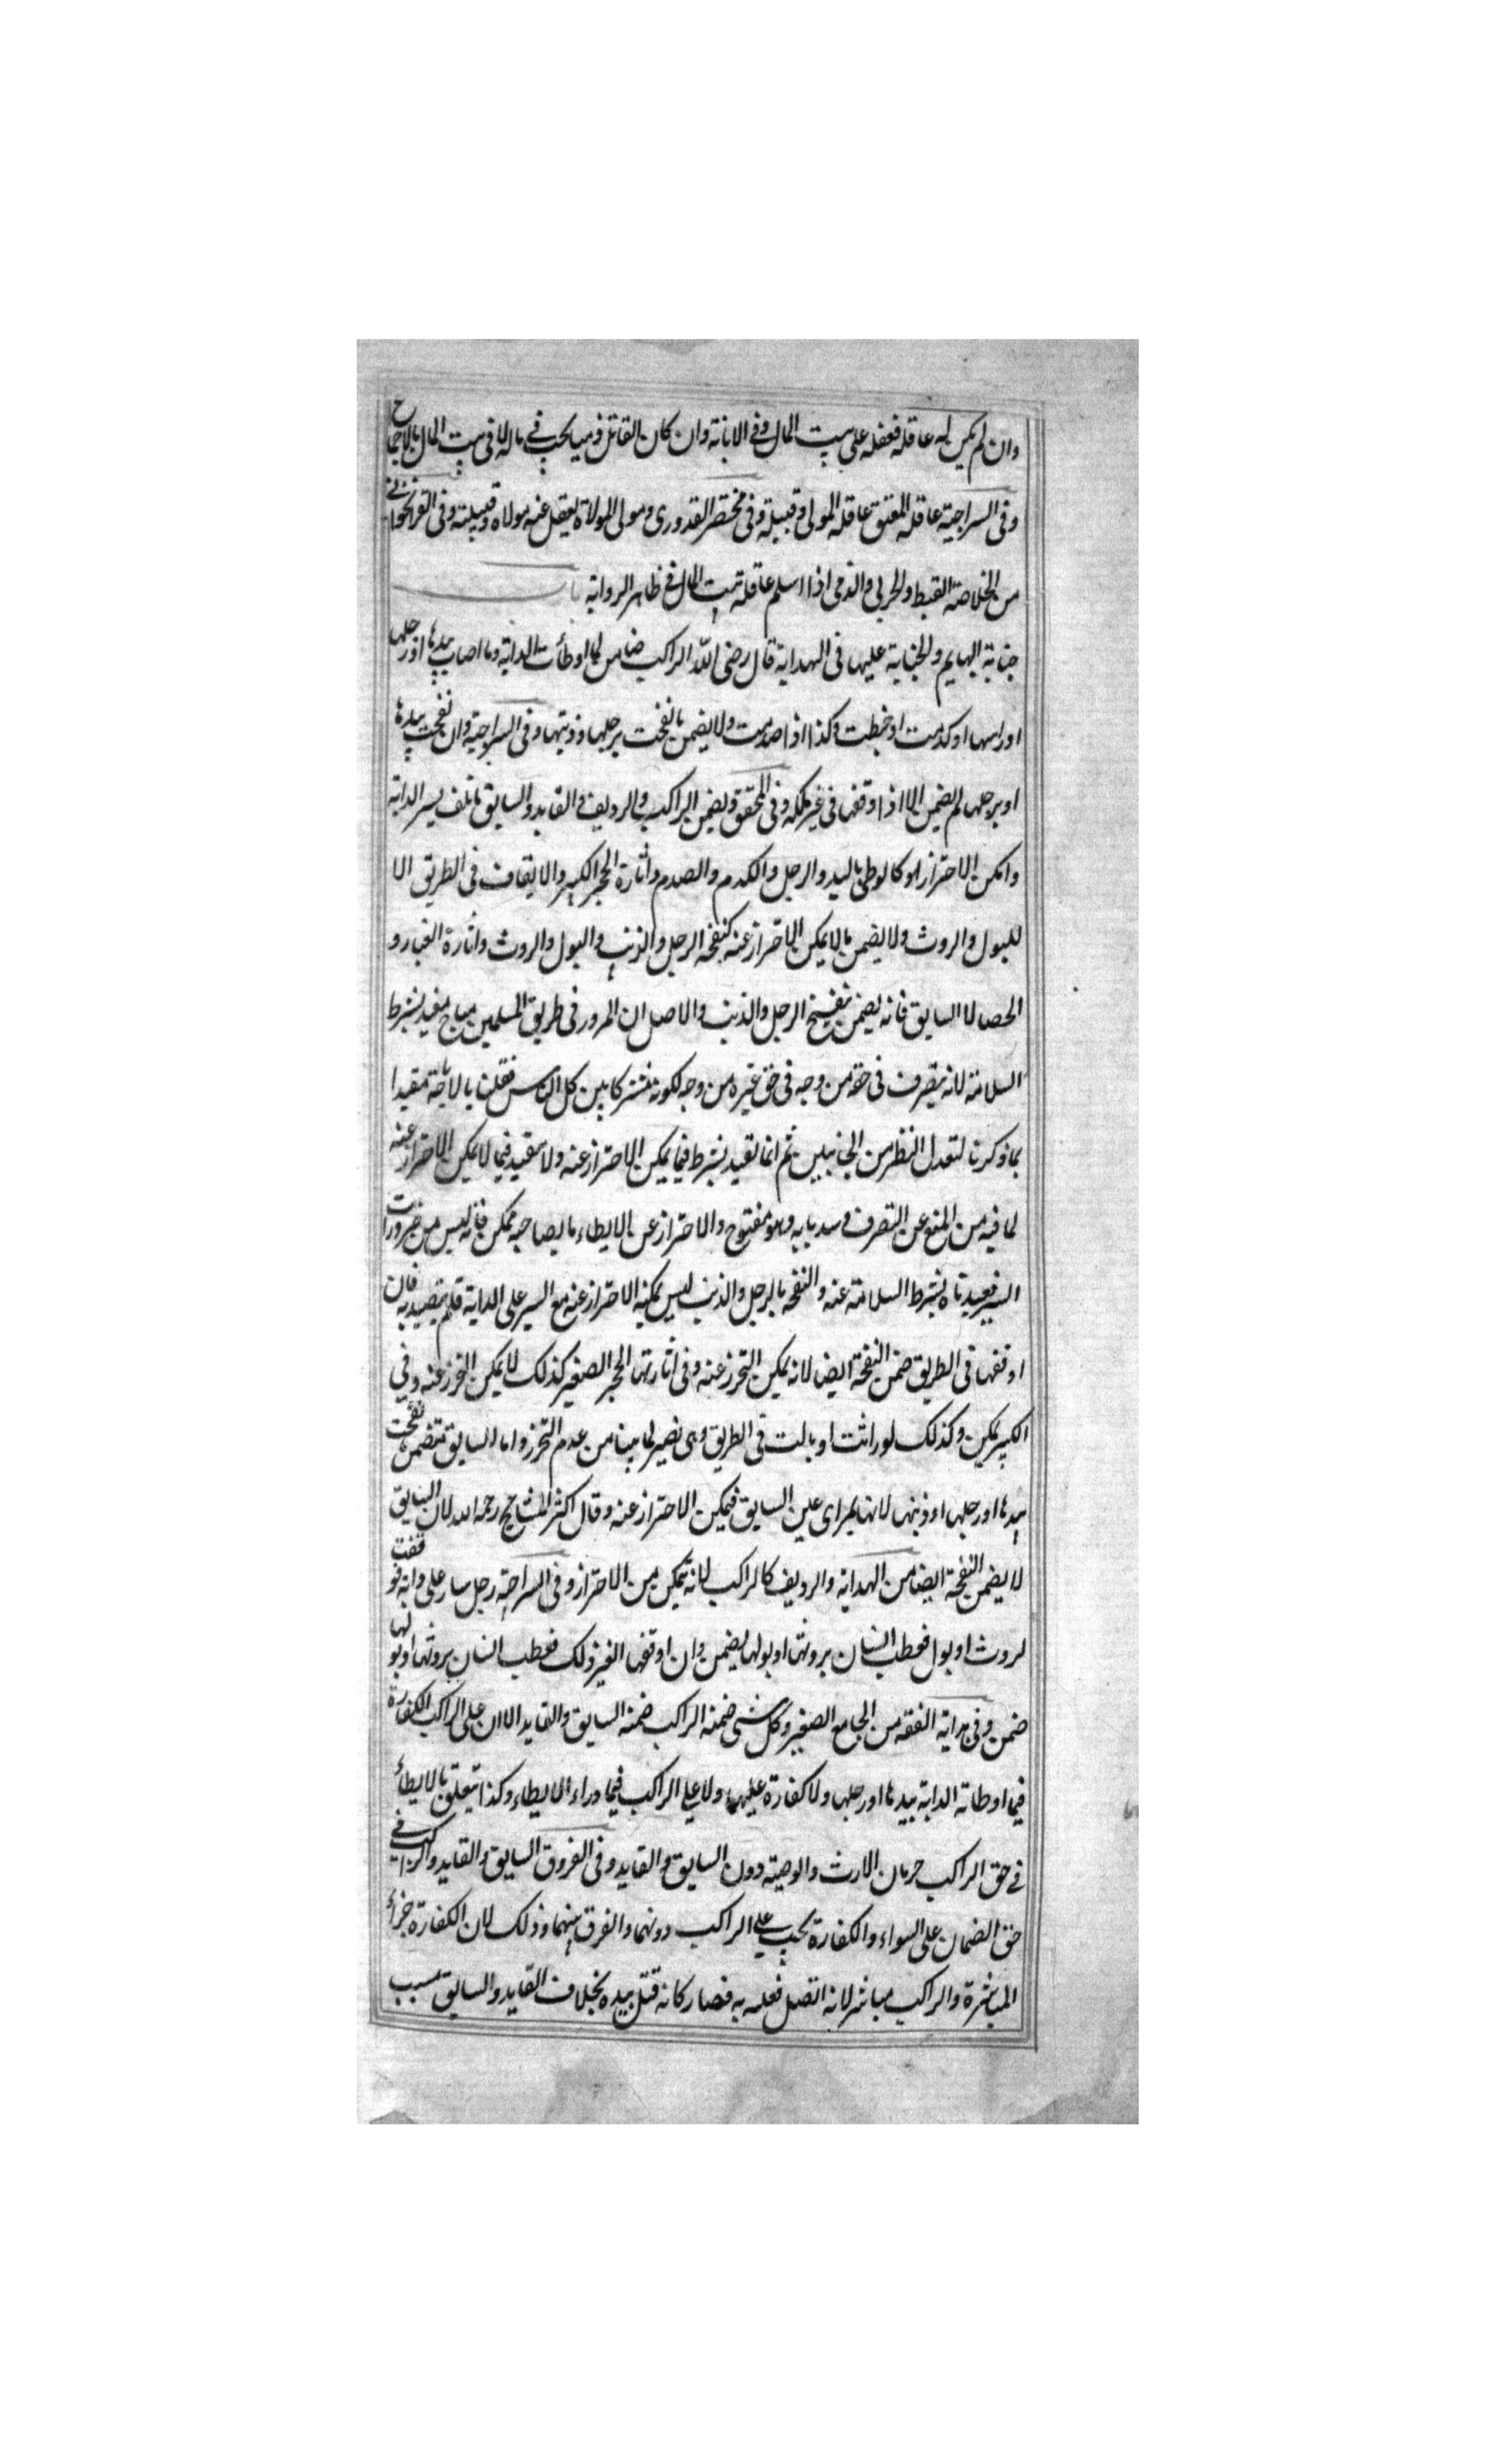 وان لم يكن له عاقلة فعقله على بيت المال وفي الابانة وان كان القاتل ذميا يجب في ماله لا في بيت المال بالاجماع
وفي السراجية عاقلة المعتق عاقلة المولى وقبيلة وفي مختصر القدوري ومولى المولاة يعقل عنه مولاه وقبيلته وفي القراخواني
من الخلاصة القيط والحربي والذمي اذا اسلم عاقلته بيت المال في ظاهر الرواية باب
جناية البهايم والجناية عليها في الهداية قال رضي الله الراكب ضامن لما اوطأت الدابة وما اصاب بيدها او رجلها
او راسها او كدمت او خبطت وكذا اذا صدمت ولا يضمن ما نفحت برجلها وذنبها وفي السراجية وان نفحت بيدها
او برجلها لم يضمن الا اذا اوقفها في غير ملكه وفي المحقق ويضمن الراكب والرديف والقايد والسايق ما تلف بسير الدابة
وامكن الاحتراز لو كالوطئ باليد والرجل والكدم والصدم واثارة الحجر الكبير والايقاف في الطريق الا
للبول والروث ولا يضمن ما لا يمكن الاحتراز عنه كنفحة الرجل والذنب والبول والروث واثارة الغبار و
الحصا لا السايق فانه يضمن بنفيح الرجل والذنب والاصل ان المرور في طريق المسلمين مباح مفيد بشرط
السلامة لانه يتصرف في حقه من وجه في حق غيره من وجه لكونه مشتركا بين كل الناس فقلنا بالاباحة مقيدا
بما ذكرنا لتعدل النظر من الجانبين ثم انما تقيد بشرط فيما يمكن الاحتراز عنه ولا يتقيد فيما لا يمكن الاحتراز عنه
لما فيه من المنع عن التصرف وسد بابه وهو مفتوح والاحتراز عن الايطاء ما يصاحبه ممكن فانه ليس من ضرورات
السير فقيدناه بشرط السلامة عنه والنفحة بالرجل والذنب ليس يمكنه الاحتراز عنه مع السير على الدابة فلم يتقيد به فان
اوقفها في الطريق ضمن النفحة ايضا لانه يمكن التحرز عنه وفي اثارتها الحجر الصغير كذلك لا يمكن التحرز عنه وفي
الكبير يمكن وكذلك لو راثت او بالت في الطريق وهي تصير لما بينا من عدم التحرز واما السايق فتضمن نفحت
بيدها او رجلها او ذنبها لانها بمراى عين السايق فيمكن الاحتراز عنه وقال اكثر المشايخ رحمه الله لان السايق
لا يضمن النفحة ايضا من الهداية والرديف كالراكب لانه يمكن من الاحتراز وفي السراجية رجل سار على دابة فوقفت
لروث او بول فعطب انسان بروثها او بولها لم يضمن وان اوقفها لغير ذلك فعطب انسان بروثها او بولها
ضمن وفي هداية الفقه من الجامع الصغير وكل شئ ضمنه الراكب ضمنه السايق والقايد الا ان على الراكب الكفارة
فيما اوطاته الدابة بيدها او رجلها ولا كفارة عليهما ولا على الراكب فيما وراء الايطاء وكذا يتعلق بالايطاء
في حق الراكب حرمان الارث والوصية دون السايق والقايد وفي الفروق السايق والقايد والراكب في
حق الضمان على السواء والكفارة يجب على الراكب دونهما والفرق بينهما وذلك لان الكفارة جزاء
المباشرة والراكب مباشر لانه اتصل فعله به فصار كانه قتل بيده بخلاف القايد والسايق بسبب